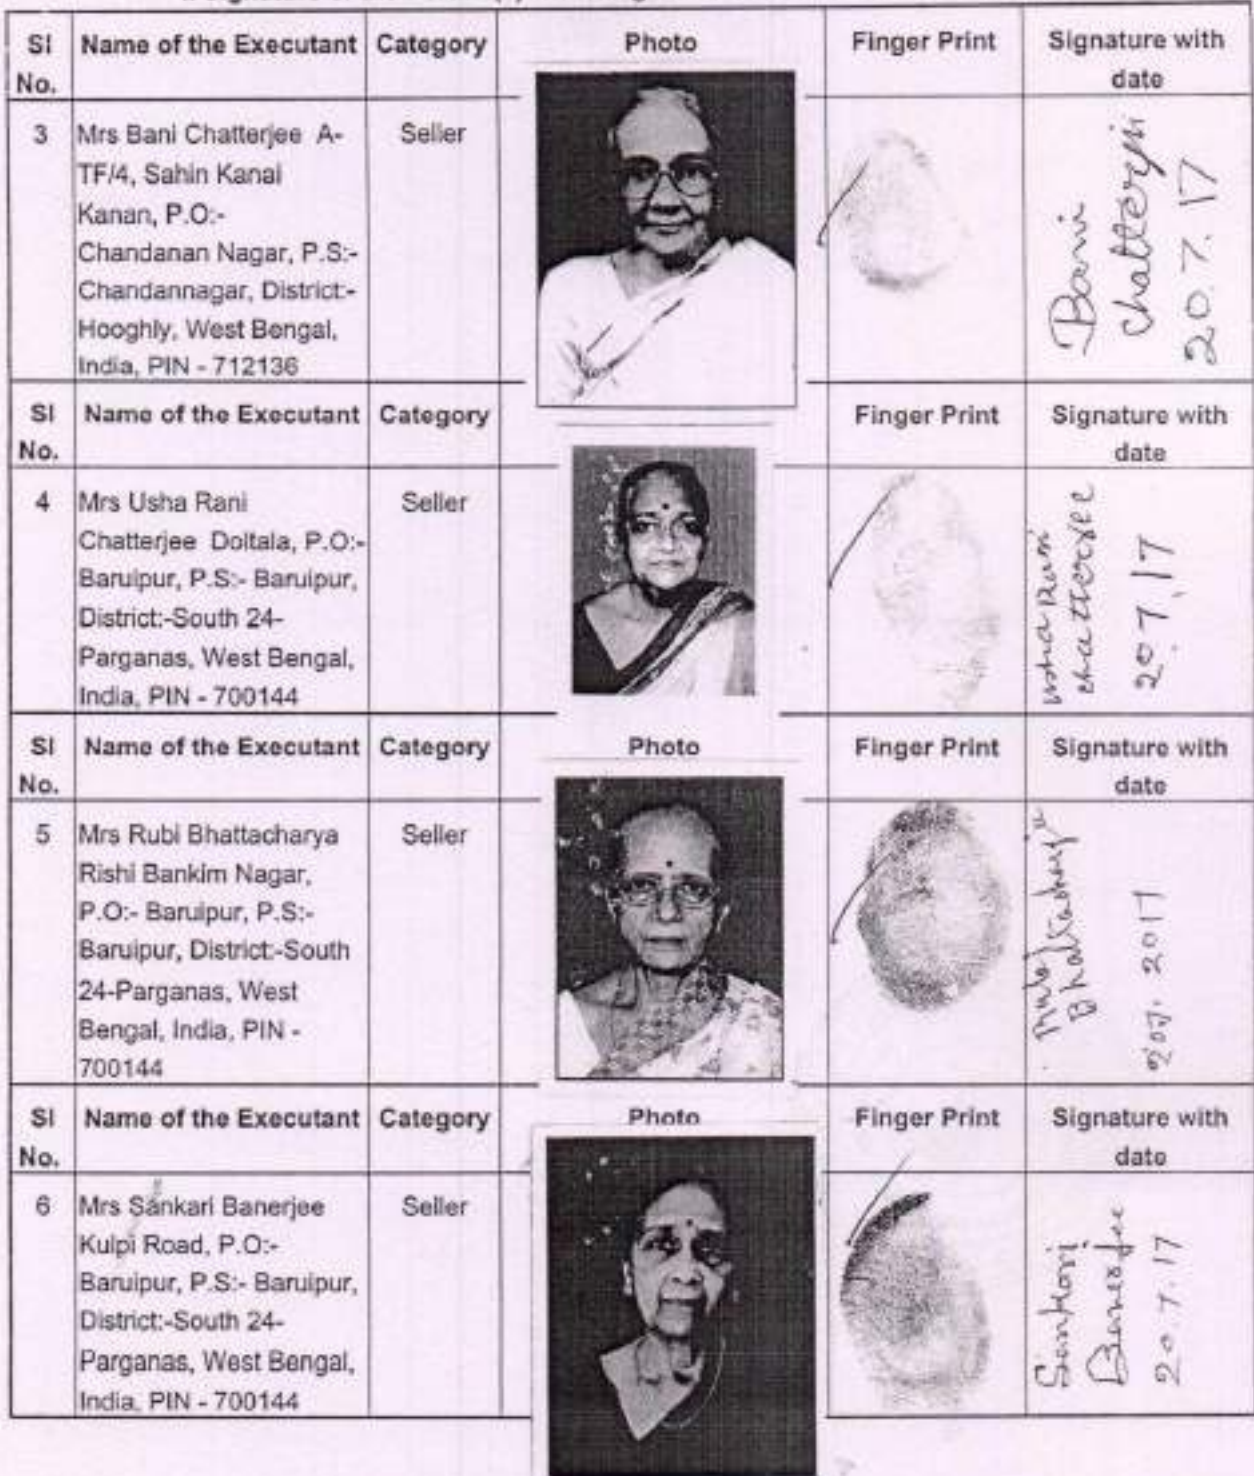 Sl No. Name of the Executant Category Photo Finger Print Signature with date
3 Mrs Bani Chatterjee A-
TF/4, Sahin Kanai
Kanan, P.O:-
Chandanan Nagar, P.S:-
Chandannagar, District:-
Hooghly, West Bengal,
India, PIN - 712136
Seller
Bani
Chatterjee
20.7.17
Sl No. Name of the Executant Category Finger Print Signature with date
4 Mrs Usha Rani
Chatterjee Doltala, P.O:-
Baruipur, P.S:- Baruipur,
District:-South 24-
Parganas, West Bengal,
India, PIN - 700144
Seller
Usha Rani
Chatterjee
20.7.17
Sl No. Name of the Executant Category Photo Finger Print Signature with date
5 Mrs Rubi Bhattacharya
Rishi Bankim Nagar,
P.O:- Baruipur, P.S:-
Baruipur, District:-South
24-Parganas, West
Bengal, India, PIN -
700144
Seller
2017
Sl No. Name of the Executant Category Photo Finger Print Signature with date
6 Mrs Sankari Banerjee
Kulpi Road, P.O:-
Baruipur, P.S:- Baruipur,
District:-South 24-
Parganas, West Bengal,
India, PIN - 700144
Seller
Sankari
Banerjee
20.7.17